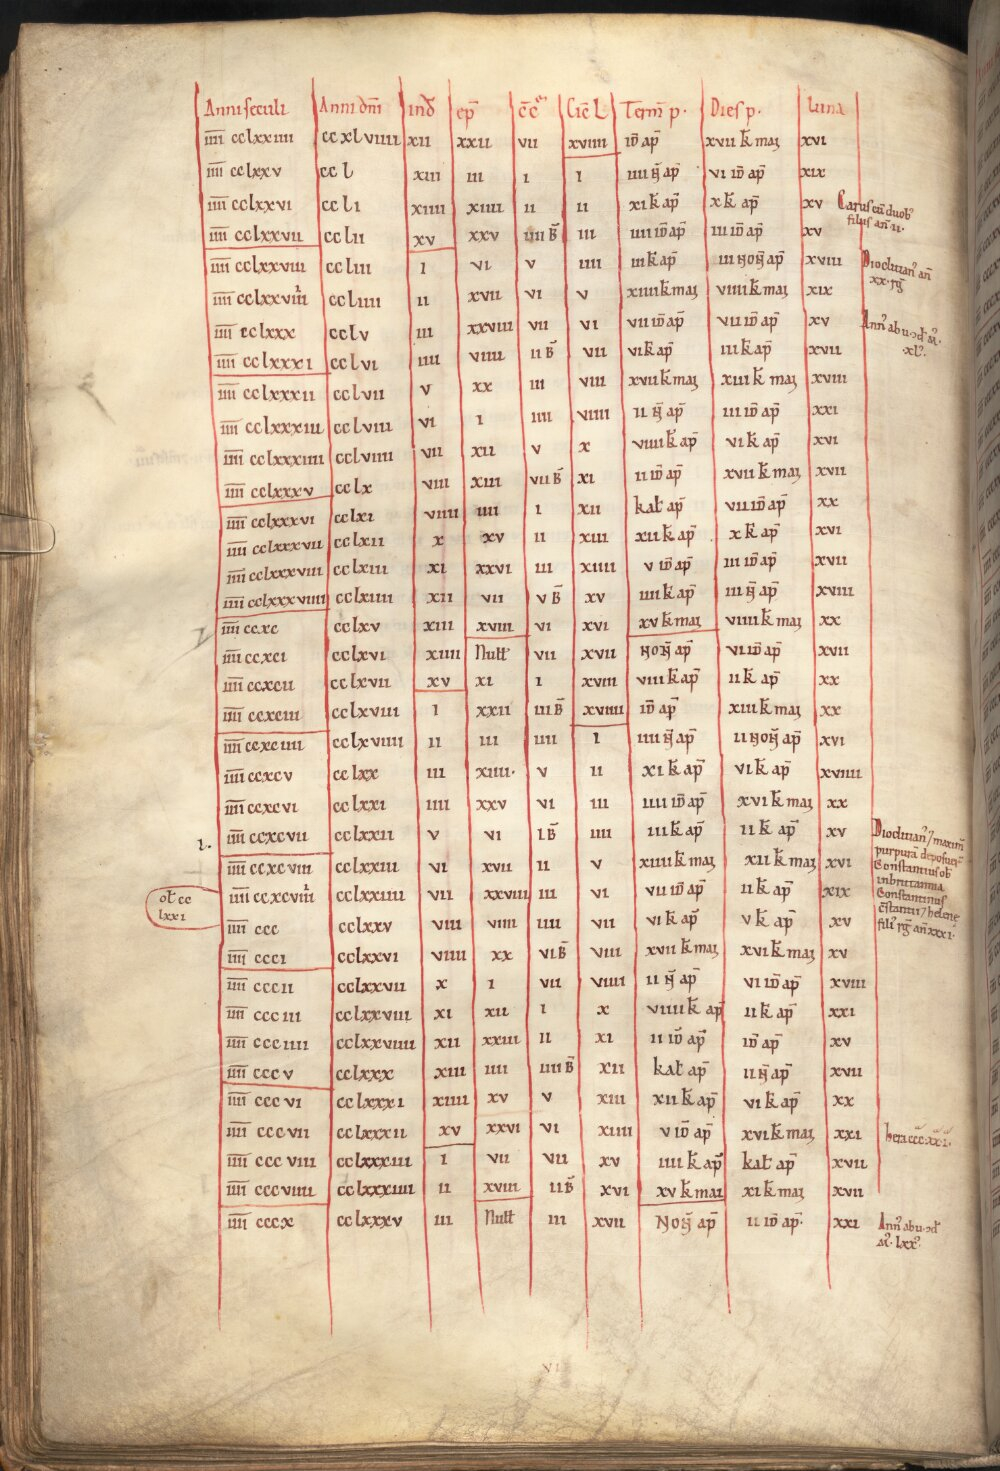 Anni seculi Anni dñi ind ep̄ c̄c̄ Cic̄ L Term̄ p. Dies p. luna
īīīī cclxxiiii ccxlviiii xii xxii vii xviiii id̄ ap̄ xvii k̄ mai xvi
īīīī cclxxv ccl xiii iii i i iiii n̄ ap̄ vi id̄ ap̄ xix
īīīī cclxxvi ccli xiiii xiiii ii ii xi k̄ ap̄ x k̄ ap̄ xv
īīīī cclxxvii cclii xv xxv iiii B̄ iii iiii id̄ ap̄ iii id̄ ap̄ xv
īīīī cclxxviii ccliii i vi v iiii iii k̄ ap̄ iii non̄ ap̄ xviii
īīīī cclxxviiii ccliiii ii xvii vi v xiiii k̄ mai viiii k̄ mai xix
īīīī cclxxx cclv iii xxviii vii vi vii id̄ ap̄ vii id̄ ap̄ xv
īīīī cclxxxi cclvi iiii viiii ii B̄ vii vi k̄ ap̄ iii k̄ ap̄ xvii
īīīī cclxxxii cclvii v xx iii viii xvii k̄ mai xiii k̄ mai xviii
īīīī cclxxxiii cclviii vi i iiii viiii ii n̄ ap̄ iii id̄ ap̄ xxi
īīīī cclxxxiiii cclviiii vii xii v x viiii k̄ ap̄ vi k̄ ap̄ xvi
īīīī cclxxxv cclx viii xiii vii B̄ xi ii id̄ ap̄ xvii k̄ mai xvii
īīīī cclxxxvi cclxi viiii iiii i xii kał ap̄ vii id̄ ap̄ xx
īīīī cclxxxvii cclxii x xv ii xiii xii k̄ ap̄ x k̄ ap̄ xvi
īīīī cclxxxviii cclxiii xi xxvi iii xiiii v id̄ ap̄ iii id̄ ap̄ xvii
īīīī cclxxxviiii cclxiiii xii vii v B̄ xv iiii k̄ ap̄ iii n̄ ap̄ xviii
īīīī ccxc cclxv xiii xviii vi xvi xv k̄ mai viiii k̄ mai xx
īīīī ccxci cclxvi xiiii Null vii xvii non̄ ap̄ vi id̄ ap̄ xvii
īīīī ccxcii cclxvii xv xi i xviii viii k̄ ap̄ ii k̄ ap̄ xx
īīīī ccxciii cclxviii i xxii iii B̄ xviiii id̄ ap̄ xiii k̄ mai xx
īīīī ccxciiii cclxviiii ii iii iiii i iiii n̄ ap̄ ii non̄ ap̄ xvi
īīīī ccxcv cclxx iii xiiii. v ii xi k̄ ap̄ vi k̄ ap̄ xviiii
īīīī ccxcvi cclxxi iiii xxv vi iii iiii id̄ ap̄ xvi k̄ mai xx
īīīī ccxcvii cclxxii v vi i B̄ iiii iii k̄ ap̄ ii k̄ ap̄ xv
īīīī ccxcviii cclxxiii vi xvii ii v xiiii k̄ mai xii k̄ mai xvi
īīīī ccxcviiii cclxxiiii vii xxviii iii vi vii id̄ ap̄ ii k̄ ap̄ xix
īīīī ccc cclxxv viii viiii iiii vii vi k̄ ap̄ v k̄ ap̄ xv
īīīī ccci cclxxvi viiii xx vi B̄ viii xvii k̄ mai xvi k̄ mai xv
īīīī cccii cclxxvii x i vii viiii ii n̄ ap̄ vi id̄ ap̄ xviii
īīīī ccciii cclxxviii xi xii i x viiii k̄ ap̄ ii k̄ ap̄ xxi
īīīī ccciiii cclxxviiii xii xxiii ii xi ii id̄ ap̄ id̄ ap̄ xv
īīīī cccv cclxxx xiii iiii iiii B̄ xii kał ap̄ ii n̄ ap̄ xvii
īīīī cccvi cclxxxi xiiii xv v xiii xii k̄ ap̄ vi k̄ ap̄ xx
īīīī cccvii cclxxxii xv xxvi vi xiiii v id̄ ap̄ xvi k̄ mai xxi
īīīī cccviii cclxxxiii i vii vii xv iiii k̄ ap̄ kał ap̄ xvii
īīīī cccviiii cclxxxiiii ii xviii ii B̄ xvi xv k̄ mai xi k̄ mai xvii
īīīī cccx cclxxxv iii Null iii xvii Non̄ ap̄ ii id̄ ap̄. xxi
Carus cū duob᾽
filiis an̄ ii.
Diocletian᾽ an̄
xx. rḡ
Ann᾽ ab u. ↄd᾽ M᾽.
xl᾽.
Dioclitian᾽ ⁊ maxim᾽
purpurā deposuer̄
Constantius ob᾽
in britannia
Constantinus
c̄stantii ⁊ helenę
fili᾽ rḡ an̄ xxxi.
Ann᾽ ab u. ↄd᾽
M᾽. lxx᾽.
i.
ot̄ cc
lxxi
vi